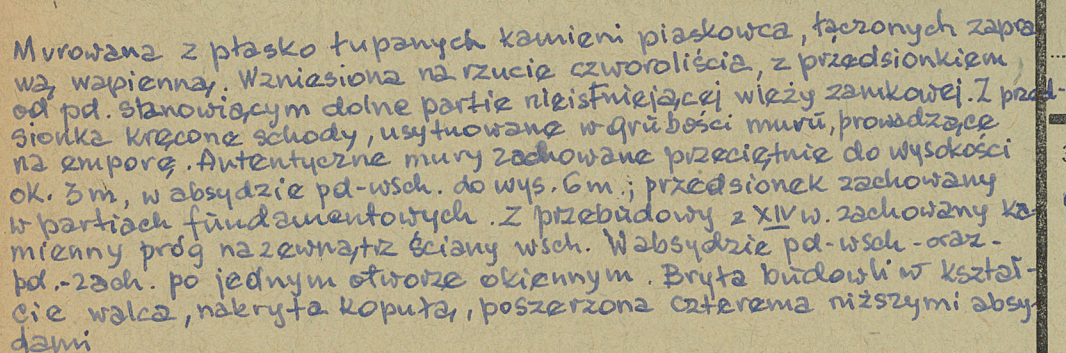 Murowana z płasko łupanych kamieni piaskowca, łączonych zapra
wą wapienną. Wzniesiona na rzucie czworoliścia, z przedsionkiem
od pd. stanowiącym dolne partie nieistniejącej wieży zamkowej. Z przed-
sionka kręcone schody, usytuowane w grubości muru, prowadzące
na emporę. Autentyczne mury zachowane przeciętnie do wysokości
ok. 3 m, w absydzie pd-wsch. do wys. 6 m.; przedsionek zachowany
w partiach fundamentowych. Z przebudowy z XIV w. zachowany ka-
mienny próg na zewnątrz ściany wsch. W absydzie pd-wsch - oraz -
pd.-zach. po jednym otworze okiennym. Bryła budowli w kształ-
cie walca, nakryta kopułą, poszerzona czterema niższymi absy-
dami